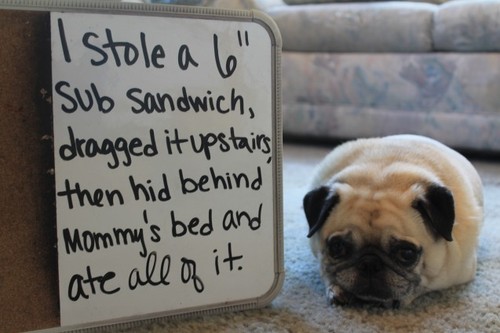 I stole a 6"
Sub Sandwich,
dragged it upstairs,
then hid behind
Mommy's bed and
ate all of it.